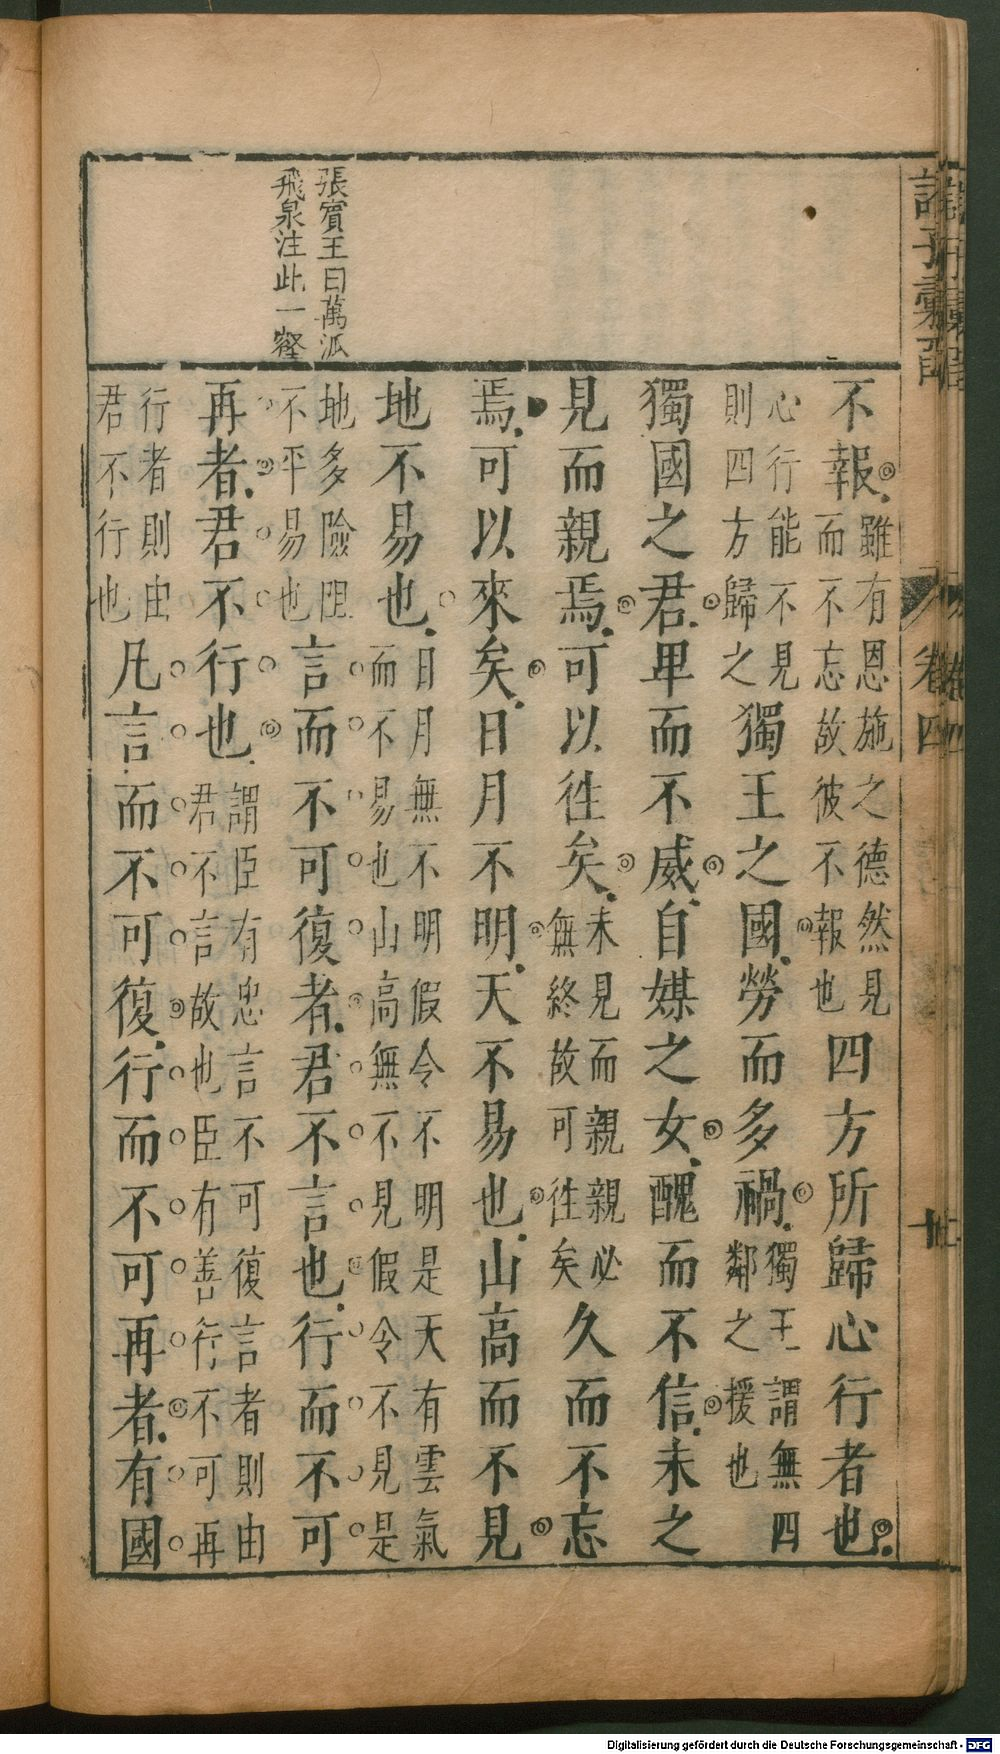 諸子彙函
卷四
張賓王曰萬派
飛泉注此一壑
不報雖有恩施之德然見而不忘故彼不報也四方所歸心行者也
心行能不見則四方歸之獨王之國勞而多禍獨王謂無四鄰之援也
獨國之君卑而不威自媒之女醜而不信未之
見而親焉可以往矣未見而親親必無終故可往矣久而不忘
焉可以來矣日月不明天不易也山高而不見
地不易也日月無不明假令不明是天有雲氣而不易也山高無不見假令不見是
地多險阻不平易也言而不可復者君不言也行而不可
再者君不行也謂臣有忠言不可復言者則由君不言故也臣有善行不可再
行者則由君不行也凡言而不可復行而不可再者有國
Digitalisierung gefördert durch die Deutsche Forschungsgemeinschaft - DFG